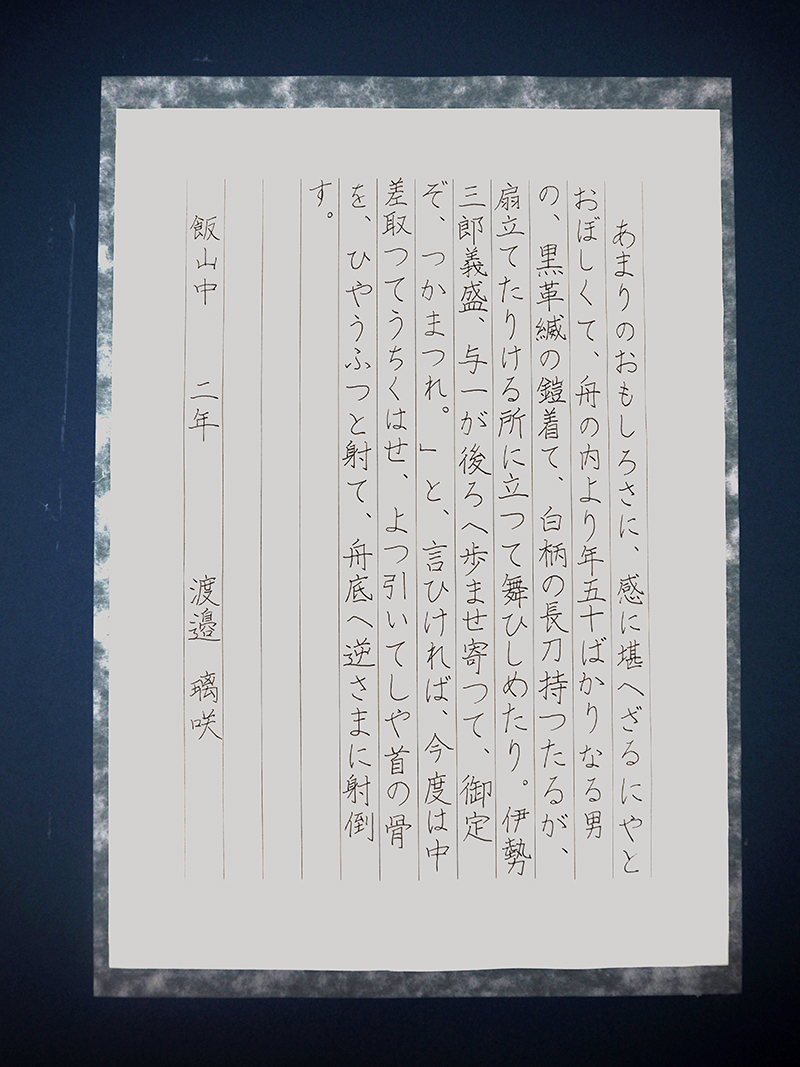 あまりのおもしろさに、感に堪へざるにやと
おぼしくて、舟の内より年五十ばかりなる男
の、黒革縅の鎧着て、白柄の長刀持つたるが、
扇立てたりける所に立つて舞ひしめたり。伊勢
三郎義盛、与一が後ろへ歩ませ寄つて、御定
ぞ、つかまつれ。」と、言ひければ、今度は中
差取つてうちくはせ、よつ引いてしや首の骨
を、ひやうふつと射て、舟底へ逆さまに射倒
す。
飯山中 二年 渡邉 璃咲